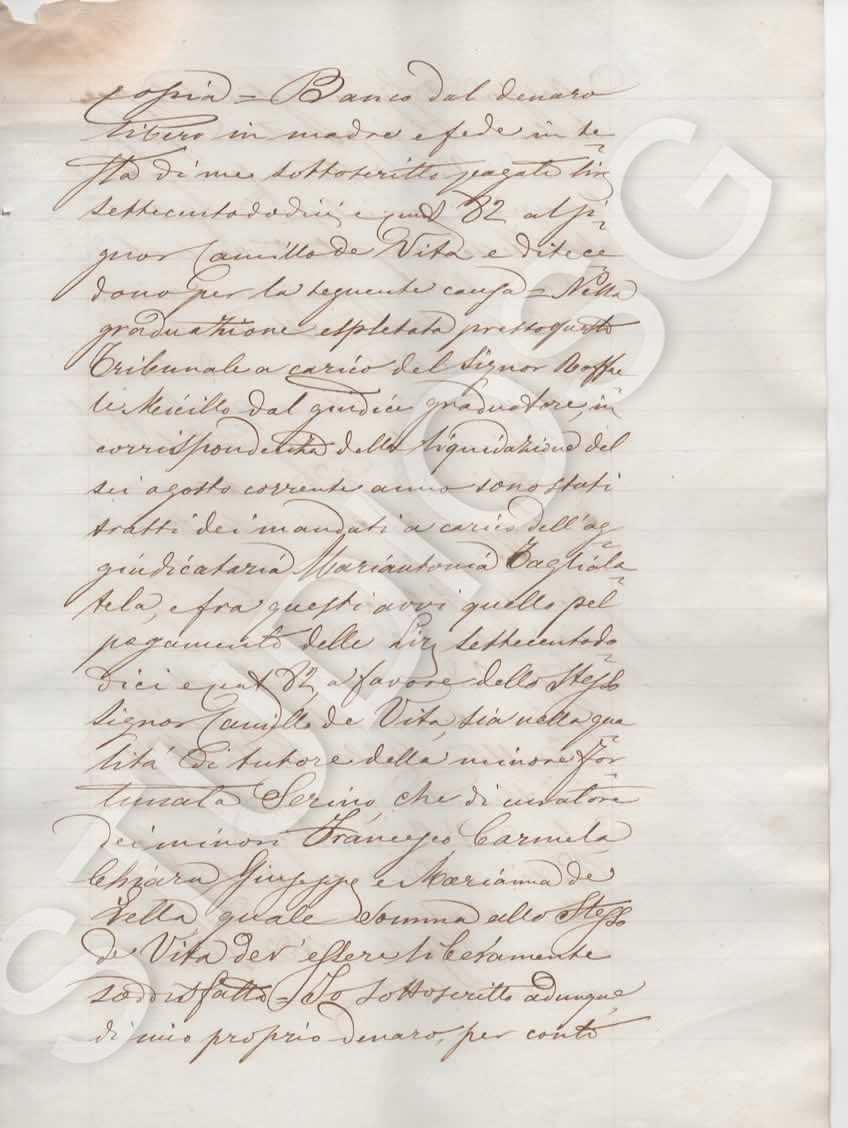 copia = Banco dal denaro
libero in madre e fede in te
sta di me sottoscritto pagate lire
settecentododici, e cent 82 al Si
gnor Camillo de Vita e dite ce
dono per la seguente causa = Nella
graduazione espletata presso questo
Tribunale a carico del Signor Raffae
le Micillo dal giudice graduatore, in
corrispondenza della liquidazione del
sei agosto corrente anno sono stati
tratti dei mandati a carico dell'ag
giudicataria Mariantonia Tagliala
tela, e fra questi avvi quello pel
pagamento delle Lire settecentodo
dici e cent 82, a favore dello stesso
Signor Camillo de Vita, sia nella qua
lità di tutore della minore For
tunata Serino, che di curatore
dei minori Francesco, Carmela,
Chiara Giuseppe e Marianna de
Vella, quale somma allo stesso
de Vita dev'essere liberamente
soddisfatta = Io sottoscritto adunque,
di mio proprio denaro, per conto
STUDIOSG